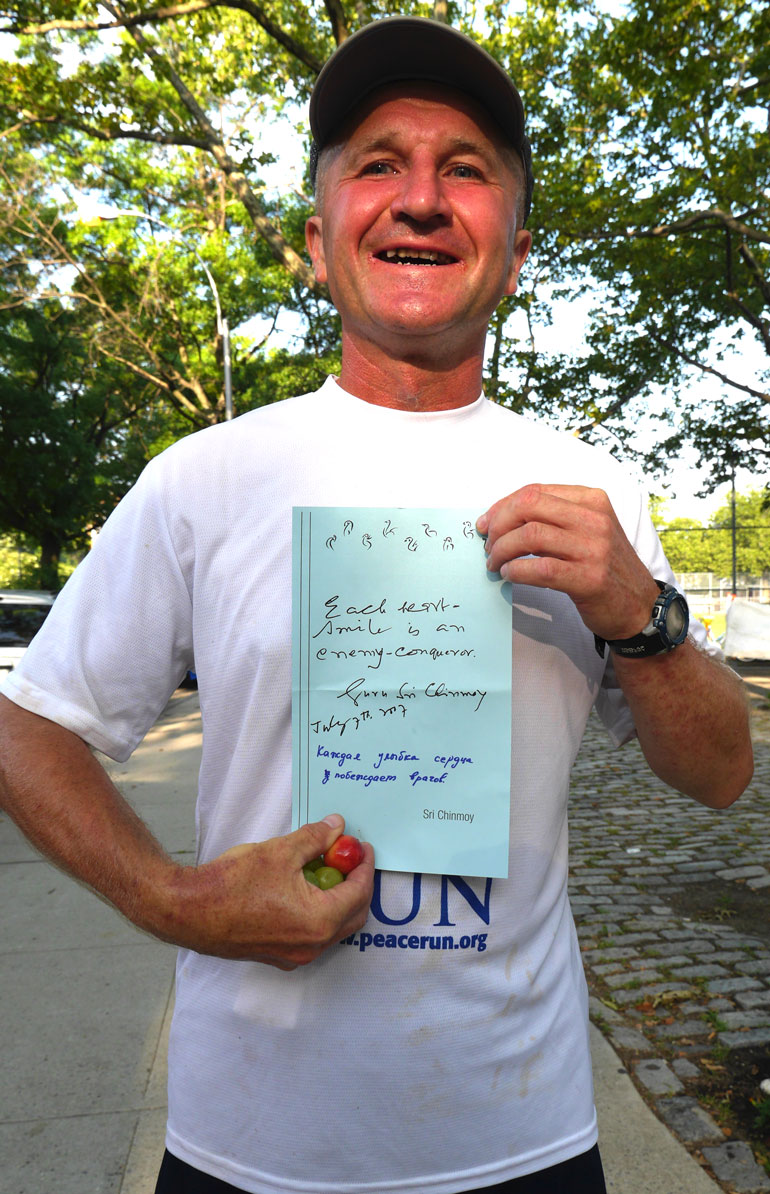 Each heart-
smile is an
enemy-conqueror.
Guru Sri Chinmoy
July 7th. 2007
Каждая улыбка сердца
побеждает врагов.
Sri Chinmoy
UN
.peacerun.org